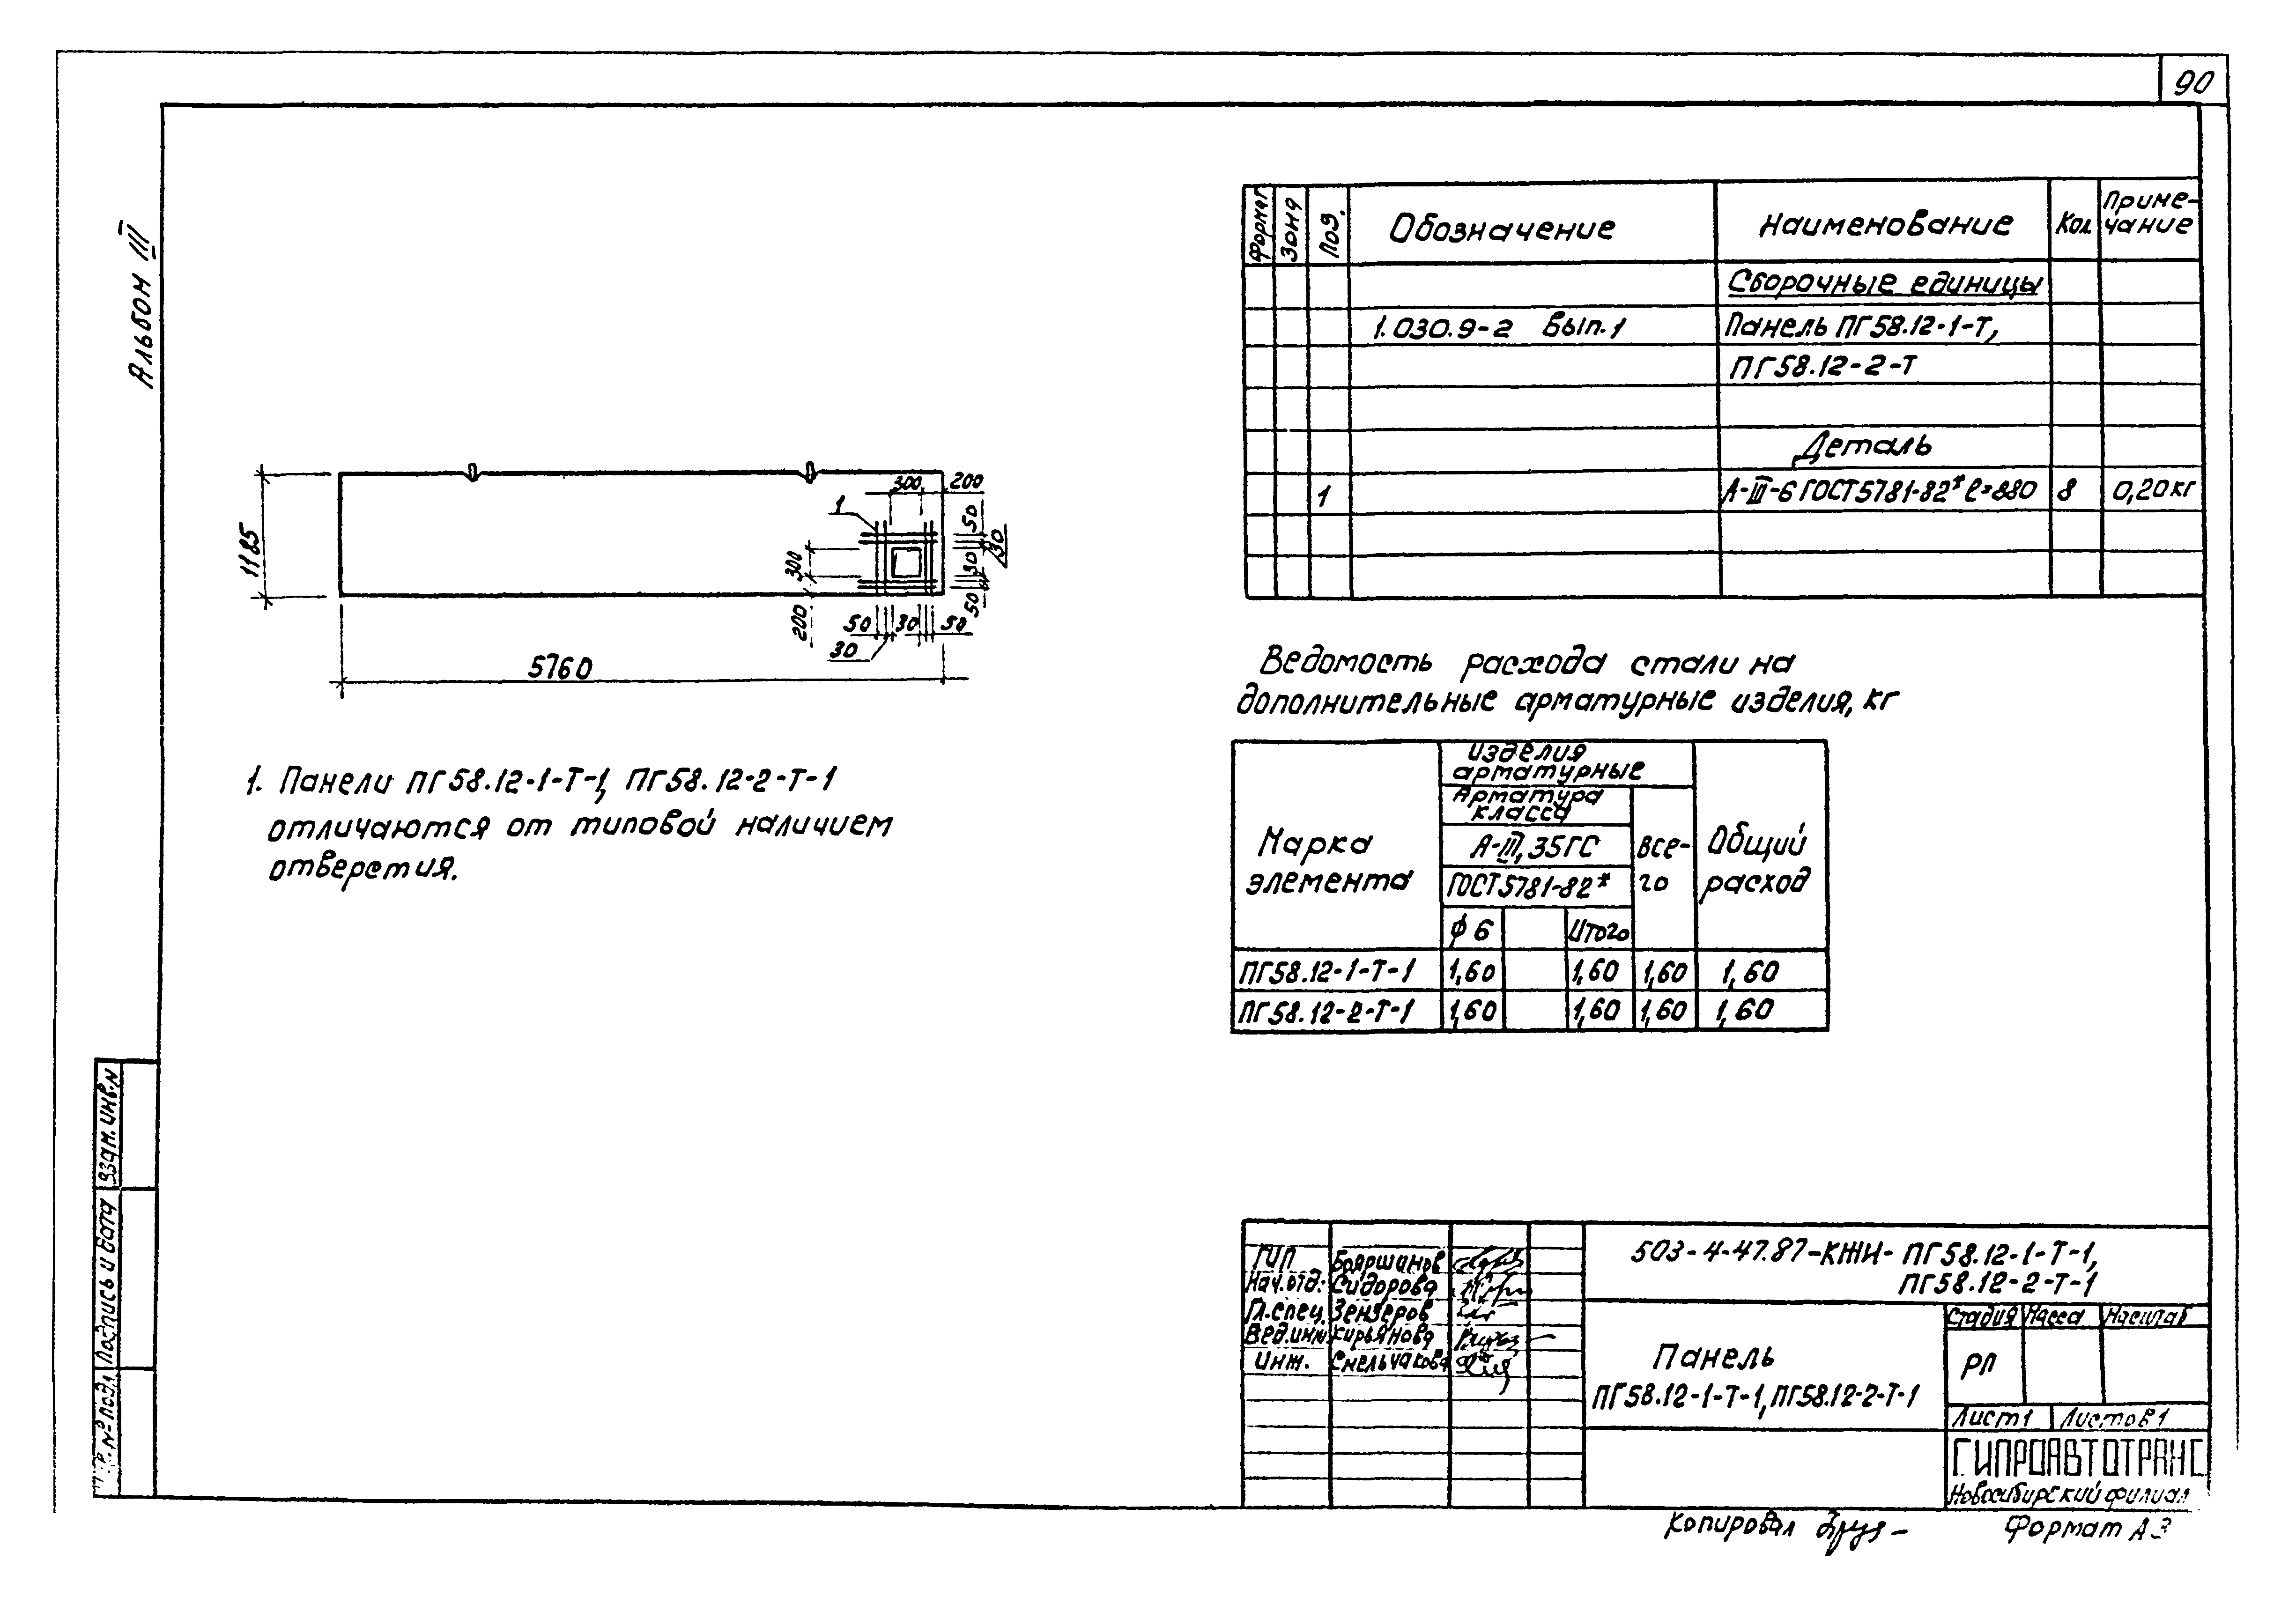 90
Альбом III
Формат
Зона
Поз.
Обозначение
Наименование
Кол
Приме-
чание
Сборочные единицы
1.030.9-2 Вып.1
Панель ПГ58.12-1-Т,
ПГ58.12-2-Т
Деталь
1
А-III-6 ГОСТ5781-82* ℓ=880
8
0,20кг
1185
5760
1
300
200
300
200
50
30
30
50
50
30
50
30
1. Панели ПГ58.12-1-Т-1, ПГ58.12-2-Т-1
отличаются от типовой наличием
отверстия.
Ведомость расхода стали на
дополнительные арматурные изделия, кг
Марка
элемента
Изделия
арматурные
Арматура
класса
А-III, 35ГС
ГОСТ5781-82*
ф6
Итого
Все-
го
Общий
расход
ПГ58.12-1-Т-1 1,60 1,60 1,60 1,60
ПГ58.12-2-Т-1 1,60 1,60 1,60 1,60
Взам. инв. №
Подпись и дата
№ подл
ГИП Бояршинов
Нач.отд. Сидорова
Гл.спец. Зензеров
Вед.инж. Кирьянова
Инж. Смельчакова
503-4-47.87-КЖИ- ПГ58.12-1-Т-1,
ПГ58.12-2-Т-1
Панель
ПГ58.12-1-Т-1, ПГ58.12-2-Т-1
Стадия Масса Масштаб
РП
Лист 1 Листов 1
ГИПРОАВТОТРАНС
Новосибирский филиал
Копировал
Формат А3